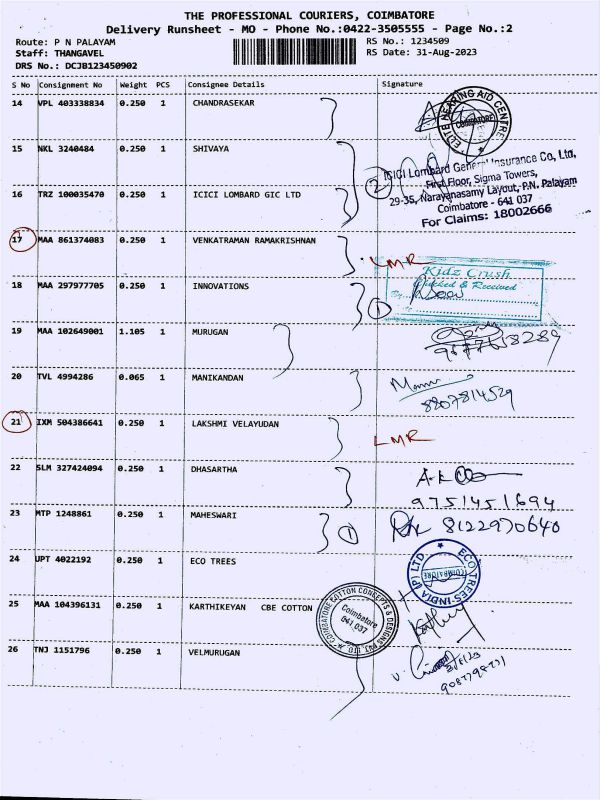 THE PROFESSIONAL COURIERS, COIMBATORE
Delivery Runsheet - MO - Phone No.:0422-3505555 - Page No.:2
Route: P N PALAYAM RS No.: 1234509
Staff: THANGAVEL RS Date: 31-Aug-2023
DRS No.: DCJB123450902
S No Consignment No Weight PCS Consignee Details Signature
14 VPL 403338834 0.250 1 CHANDRASEKAR
ELITE HEARING AID CENTRE
COIMBATORE
15 NKL 3240484 0.250 1 SHIVAYA
ICICI Lombard General Insurance Co, Ltd,
First Floor, Sigma Towers,
29-35, Narayanasamy Layout, P.N. Palayam
Coimbatore - 641 037
For Claims: 18002666
2
16 TRZ 100035470 0.250 1 ICICI LOMBARD GIC LTD
17 MAA 861374083 0.250 1 VENKATRAMAN RAMAKRISHNAN
LMR
Kidz Crush
Checked & Received
18 MAA 297977705 0.250 1 INNOVATIONS
1
19 MAA 102649001 1.105 1 MURUGAN
20 TVL 4994286 0.065 1 MANIKANDAN
8807814529
21 IXM 504386641 0.250 1 LAKSHMI VELAYUDAN
LMR
22 SLM 327424094 0.250 1 DHASARTHA
9751451694
23 MTP 1248861 0.250 1 MAHESWARI
1
8122970640
24 UPT 4022192 0.250 1 ECO TREES
ECO TREES INDIA (P) LTD
COIMBATORE
25 MAA 104396131 0.250 1 KARTHIKEYAN CBE COTTON
COIMBATORE COTTON CONCEPTS & DESIGNS PVT. LTD.
Coimbatore
641 037
26 TNJ 1151796 0.250 1 VELMURUGAN